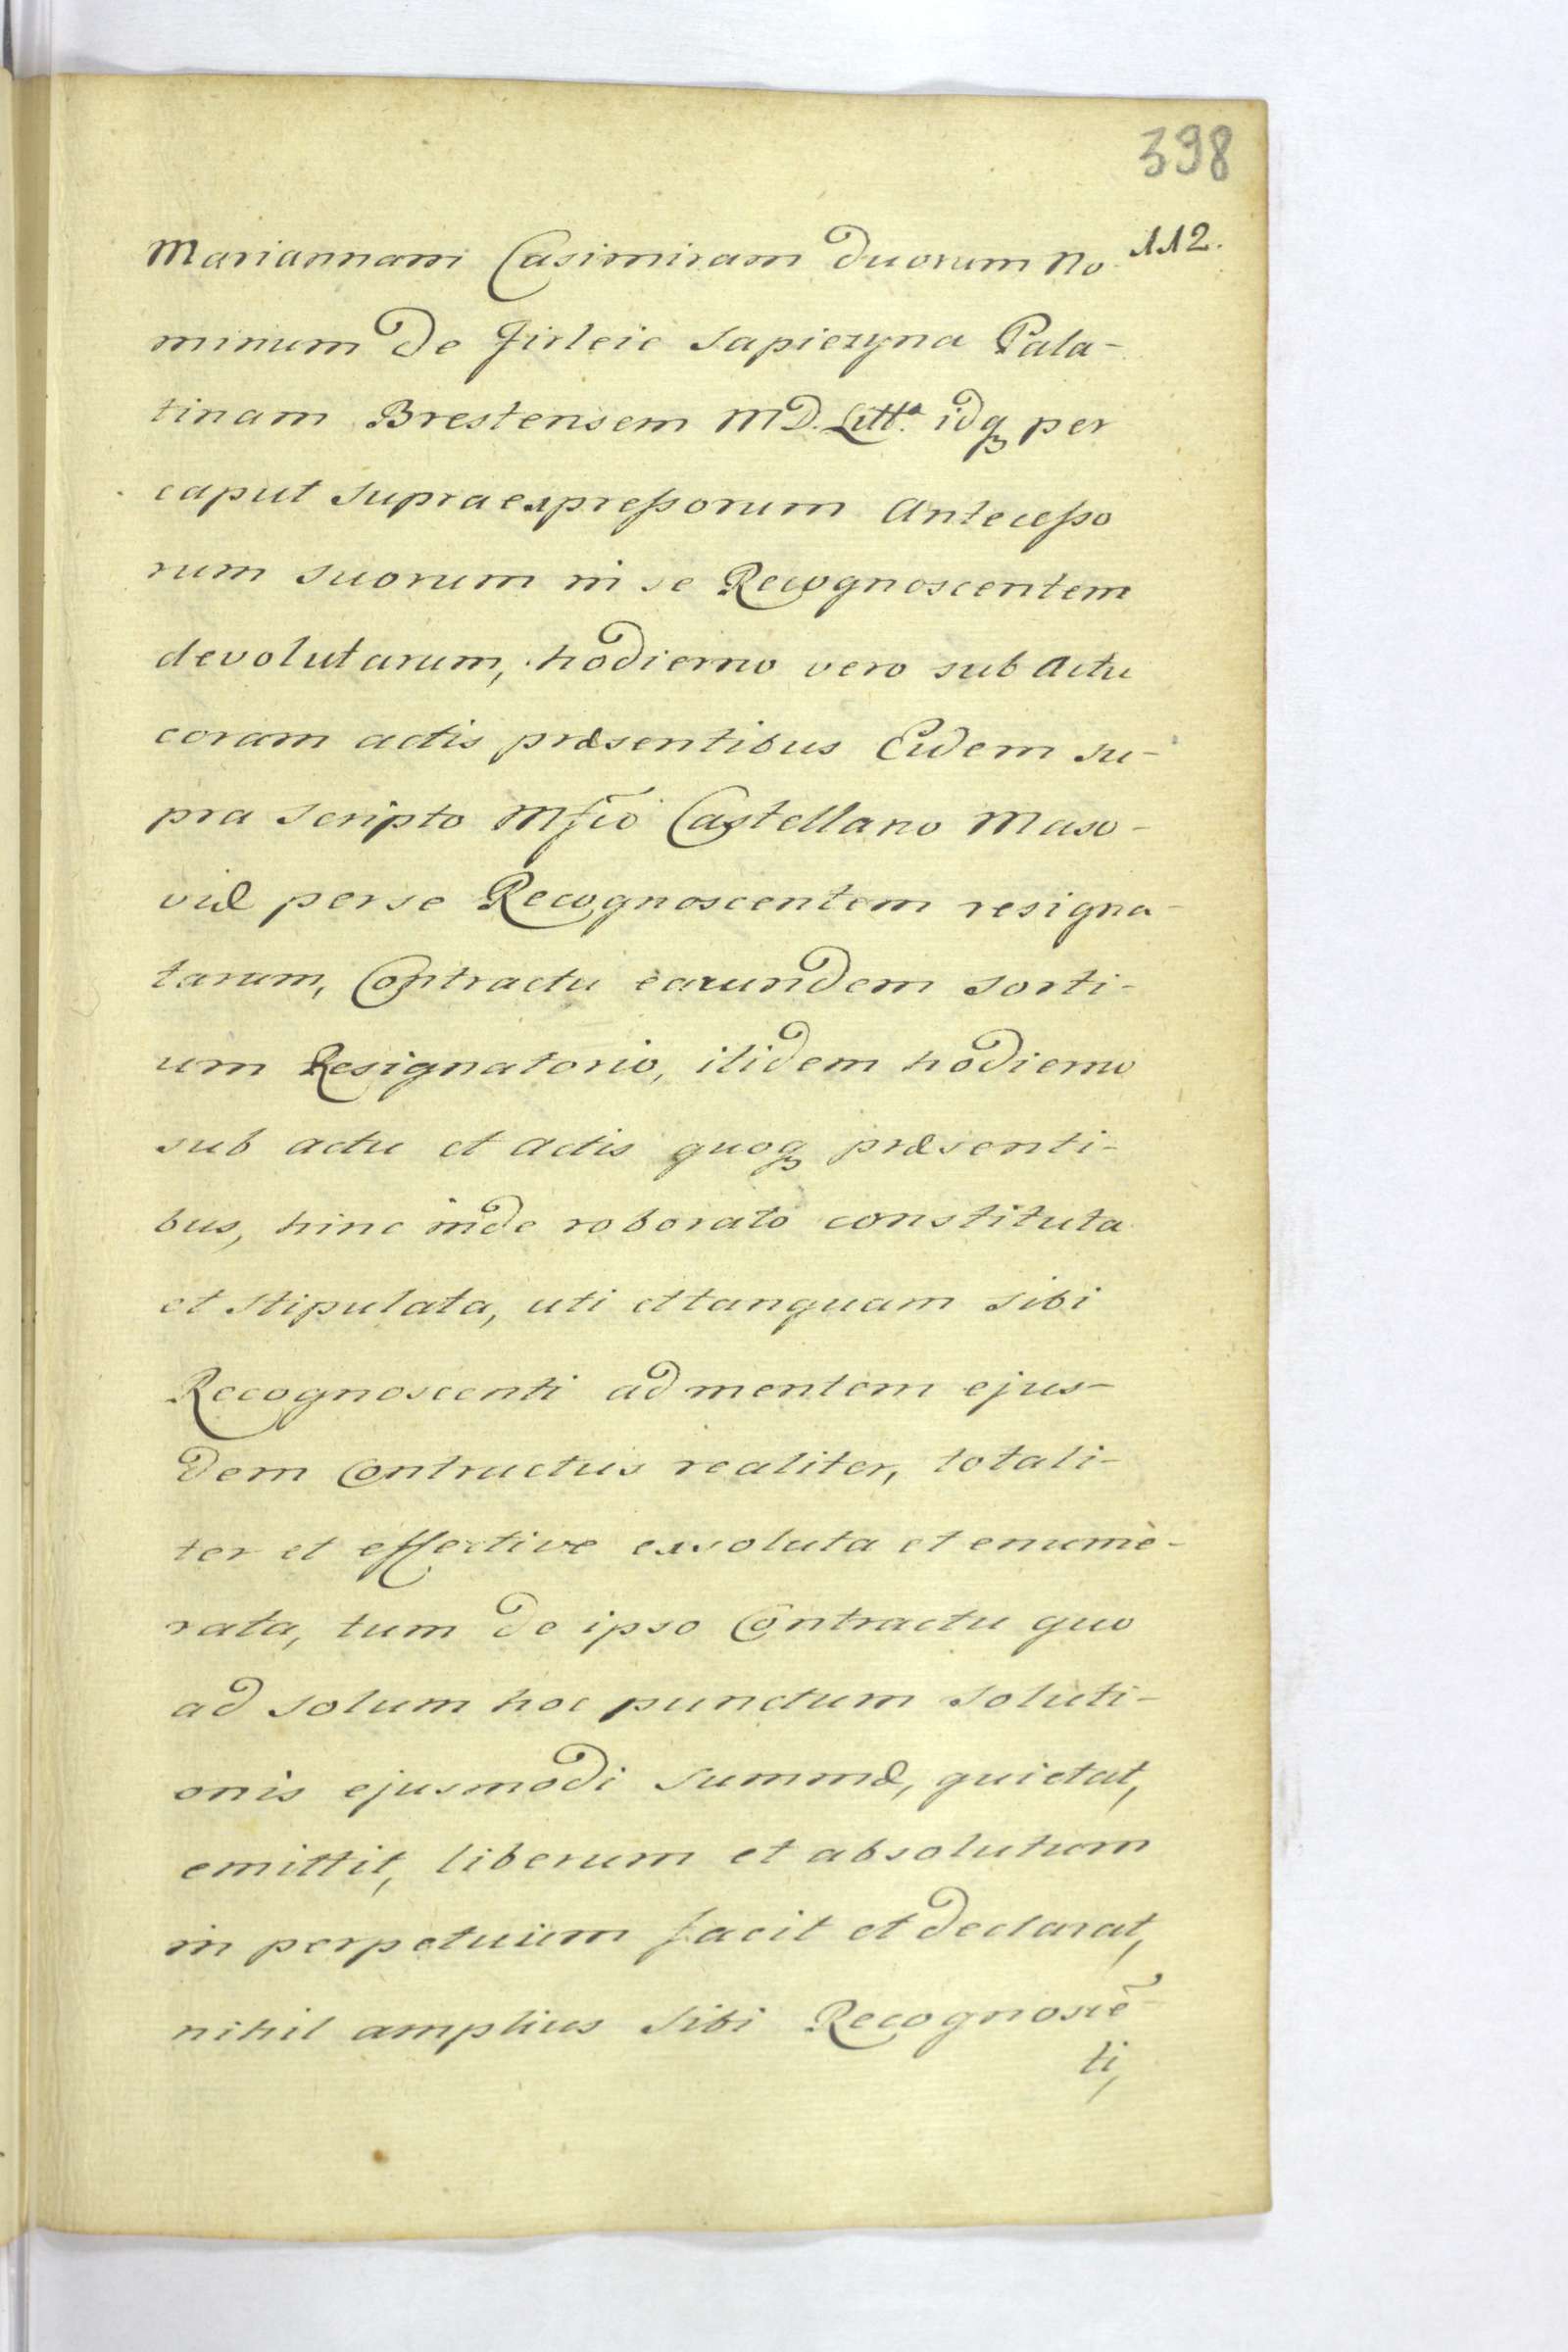 398
112.
Mariannam Casimiram duorum No
minum de Firleie Sapiezyna Pala-
tinam Brestensem MD. Litt.ᵃ idq₃ per
caput supraexpreſsorum Anteceſso
rum suorum in se Recognoscentem
devolutarum, hodierno vero sub Actu
coram actis præsentibus Eidem su-
pra scripto Mf̃co Castellano Maso-
viæ per se Recognoscentem resigna-
tarum, Contractu earundem sorti-
um Resignatorio, itidem hodierno
sub actu et actis quoq₃ præsenti-
bus, hinc inde roborato constituta
et stipulata, uti et tanquam sibi
Recognoscenti ad mentem ejus-
dem Contractus realiter, totali-
ter et effective exsoluta et enume-
rata, tum de ipso Contractu quo
ad solum hoc punctum soluti-
onis ejusmodi summæ, quietat,
emittit, liberum et absolutum
in perpetuum facit et declarat,
nihil amplius sibi Recognoscẽ-
ti,